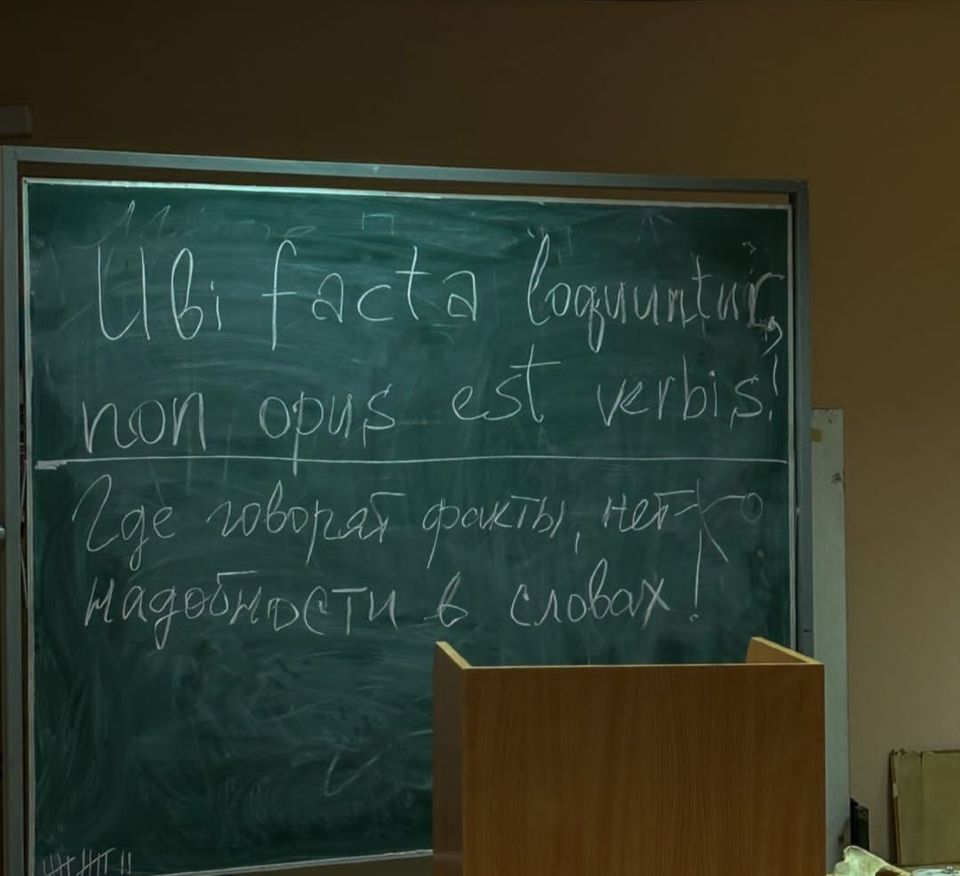 Ubi facta loquuntur,
non opus est verbis!
Где говорят факты, нет
надобности в словах!